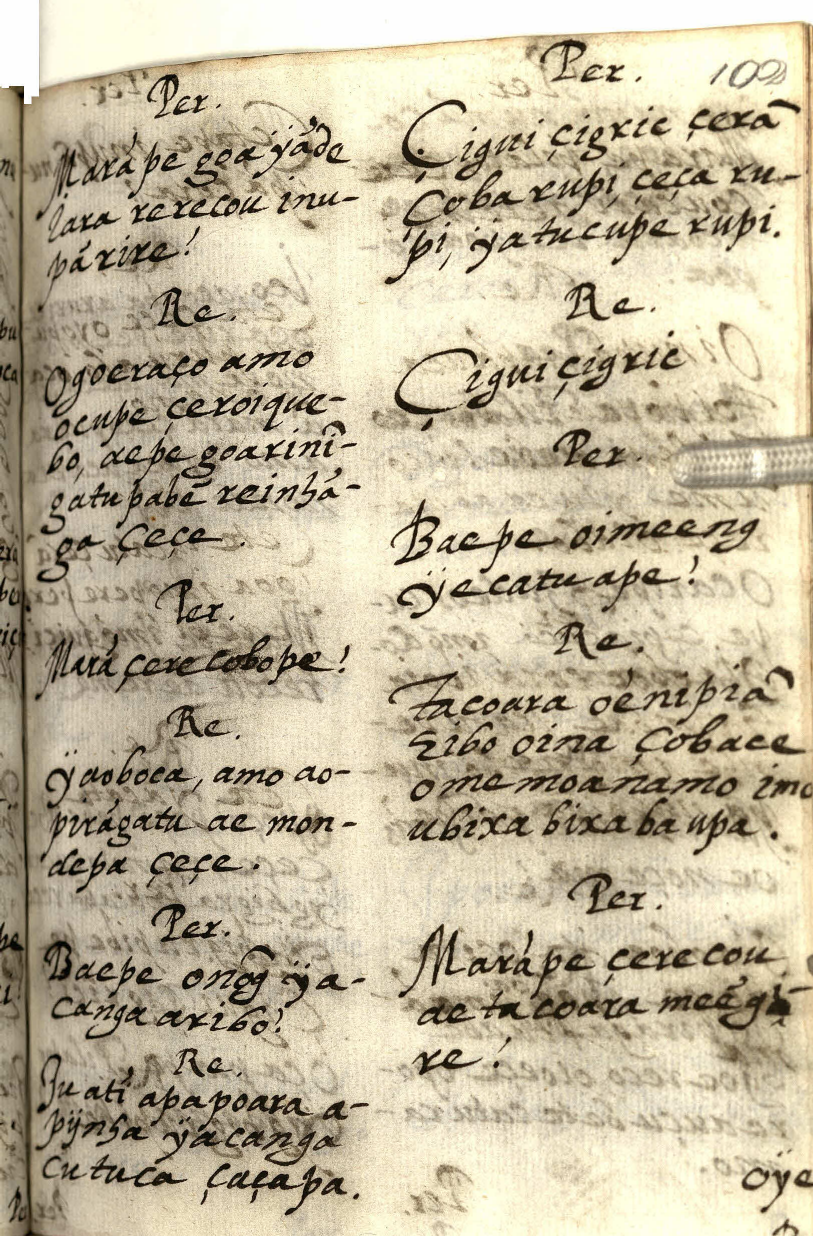 Per.
Marápe goa ÿáde
Iara rerecou inu-
párire!
Re.
Ogoeraço amo
ocupe çeroique-
bo, aepe goarinĩ-
gatu pabẽ reinhá-
ga çeçe.
Per.
Mará çerecobope!
Re.
Ÿaoboca, amo ao-
pirágatu ae mon-
depa çeçe.
Per.
Baepe onõg ÿa-
canga aribo!
Re.
Iu atĩ apapoara a-
pÿnha ÿacanga
cutuca çaçapa.
Per.
102
Çigui çigrie çerã
Çoba rupi, çeça ru-
pi, ÿatucupe rupi.
Re.
Çigui çigrie
Per.
Baepe oimeeng
ÿecatu ape!
Re.
Tacoara oènipiã
Eibo oina çobace
omemoanamo imo
ubixa bixaba upa.
Per.
Marápe çerecou
ae tacoara meẽgi-
re!
oÿe